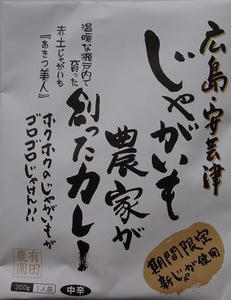 広島・安芸津
じゃがいも
農家が
創ったカレー
温暖な瀬戸内で
育った
赤土じゃがいも
『あきつ美人』
ホクホクのじゃがいもが
ゴロゴロじゃけん!!
期間限定
新じゃが使用
有田
農園
200g
1人前
中辛